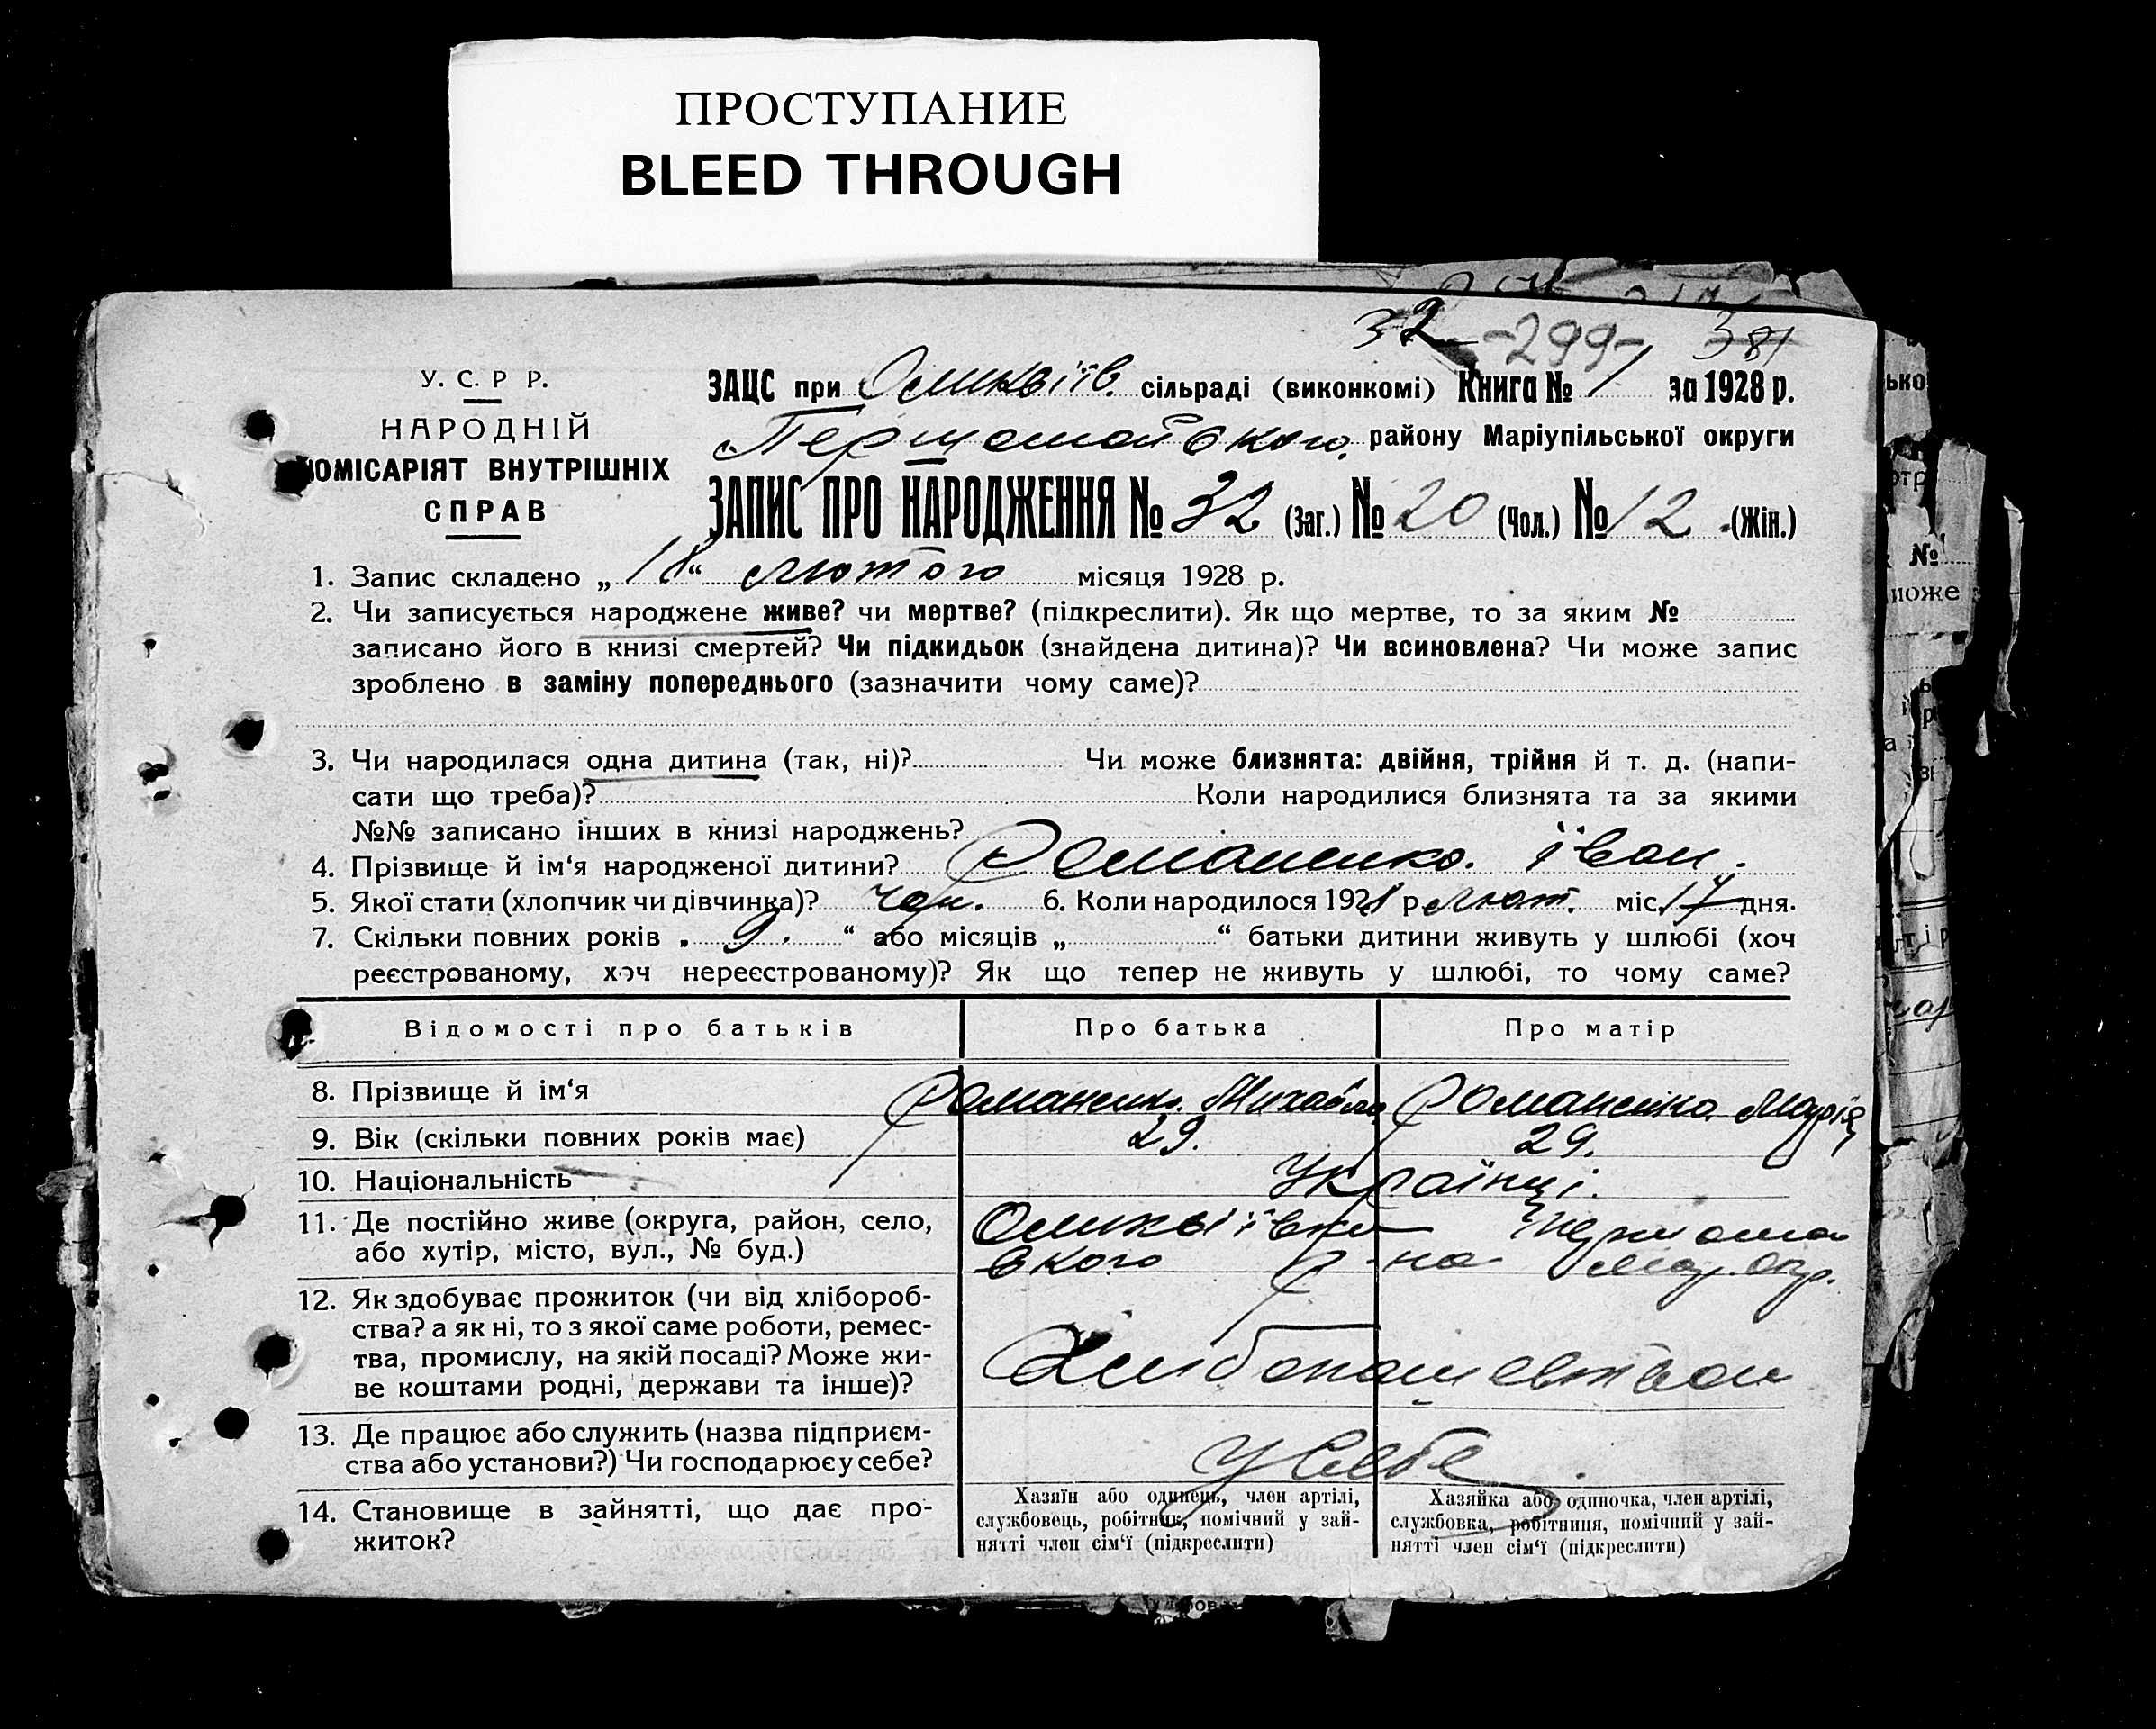 ПРОСТУПАНИЕ
BLEED THROUGH
32 -299- 
У. С. Р Р.
НАРОДНІЙ
КОМІСАРІЯТ ВНУТРІШНІХ
СПРАВ
ЗАЦС при сільраді (виконкомі) Книга № 1 за 1928 р.
Першомайського району Маріупільської округи
ЗАПИС ПРО НАРОДЖЕННЯ № 32 (Заг.) № 20 (Чол.) № 12 (Жін.)
1. Запис складено „ 18 “ лютого місяця 1928 р.
2. Чи записується народжене живе? чи мертве? (підкреслити). Як що мертве, то за яким №
записано його в книзі смертей? Чи підкидьок (знайдена дитина)? Чи всиновлена? Чи може запис
зроблено в заміну попереднього (зазначити чому саме)?
3. Чи народилася одна дитина (так, ні)? Чи може близнята: двійня, трійня й т. д. (напи-
сати що треба)? Коли народилися близнята та за якими
№№ записано інших в книзі народжень?
4. Прізвище й ім‘я народженої дитини? Романенко. Іван.
5. Якої стати (хлопчик чи дівчинка)? чол. 6. Коли народилося 1928 р лют. міс. 17 дня.
7. Скільки повних років „ 9. “ або місяців „ “ батьки дитини живуть у шлюбі (хоч
реєстрованому, хоч нереєстрованому)? Як що тепер не живуть у шлюбі, то чому саме?
Відомості про батьків Про батька Про матір
8. Прізвище й ім‘я Романенко Михайло Романенко Марія
9. Вік (скільки повних років має) 29. 29.
10. Національність Українці.
11. Де постійно живе (округа, район, село,
або хутір, місто, вул., № буд.) Першомай
ського р-на Мар. окр.
12. Як здобуває прожиток (чи від хлібороб-
ства? а як ні, то з якої саме роботи, ремес-
тва, промислу, на якій посаді? Може жи-
ве коштами родні, держави та інше)?
13. Де працює або служить (назва підприєм-
ства або установи?) Чи господарює у себе? У себе.
14. Становище в зайнятті, що дає про-
житок?
Хазяїн або одинець, член артілі,
службовець, робітник, помічний у зай-
нятті член сім‘ї (підкреслити)
Хазяйка або одиночка, член артілі,
службовка, робітниця, помічний у зай-
нятті член сім‘ї (підкреслити)